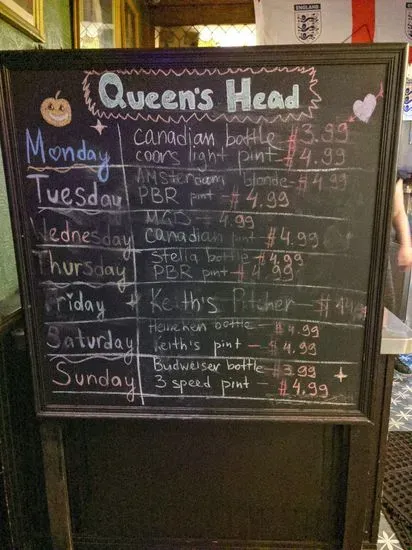 ENGLAND
Queen's Head
Monday
Canadian bottle - $3.99
coors light pint - $4.99
Tuesday
Amsterdam blonde - $4.99
PBR pint - $4.99
Wednesday
MGD - 4.99
Canadian pint - $4.99
Thursday
Stella bottle - $4.99
PBR pint - $4.99
Friday
Keith's Pitcher -
Saturday
Heineken bottle - $4.99
Keith's pint - $4.99
Sunday
Budweiser bottle - $3.99
3 speed pint - $4.99